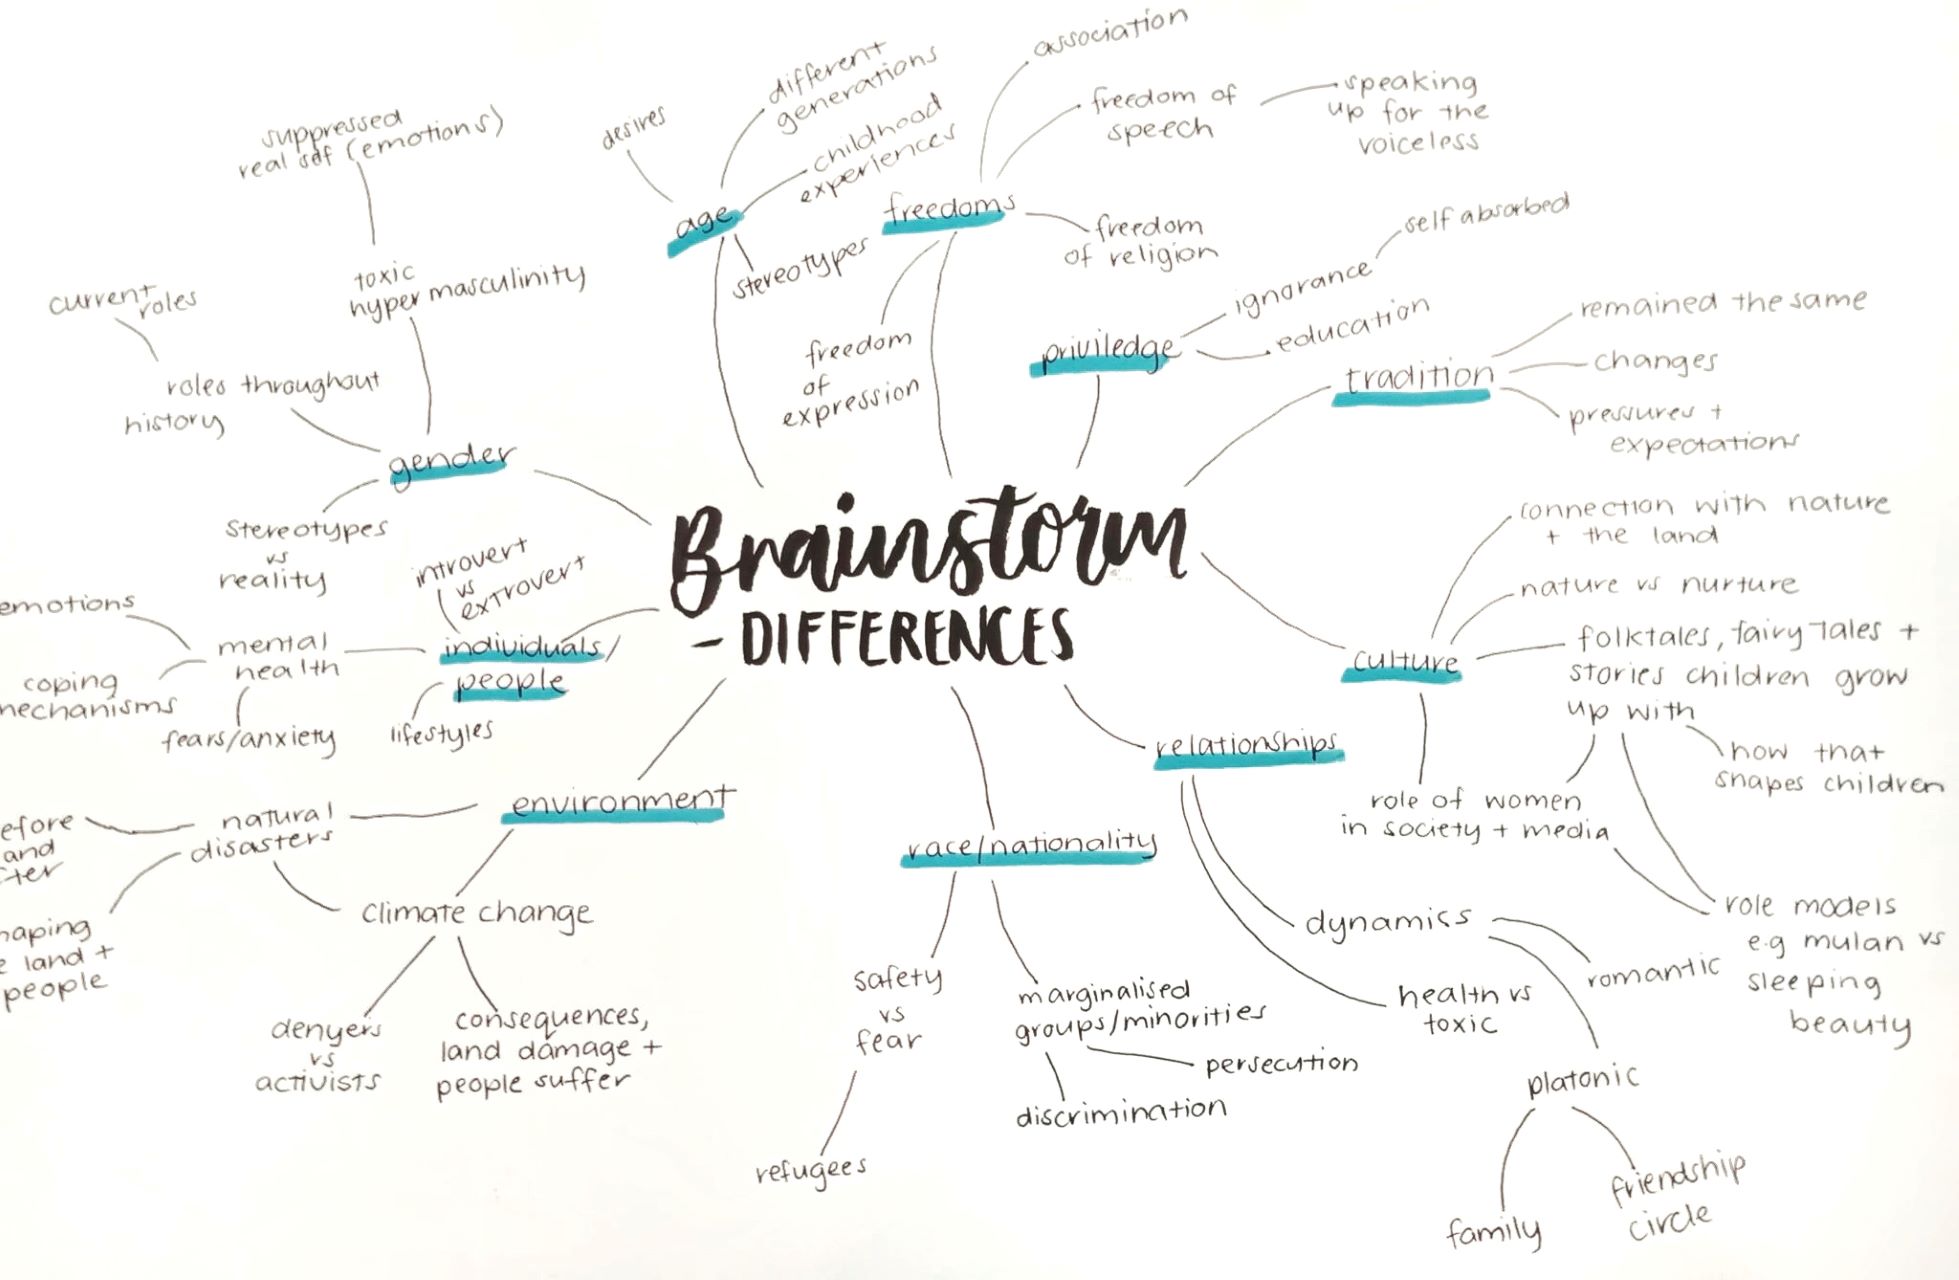 Brainstorm
- DIFFERENCES
age
desires
different
generations
childhood
experiences
stereotypes
freedoms
association
freedom of
speech
speaking
up for the
voiceless
freedom
of religion
freedom
of
expression
priviledge
ignorance
self absorbed
education
tradition
remained the same
changes
pressures +
expectations
culture
connection with nature
+ the land
nature vs nurture
folktales, fairy tales +
stories children grow
up with
how that
shapes children
role of women
in society + media
role models
e.g mulan vs
sleeping
beauty
relationships
dynamics
romantic
platonic
family
friendship
circle
health vs
toxic
race/nationality
safety
vs
fear
refugees
marginalised
groups/minorities
persecution
discrimination
environment
natural
disasters
efore
and
ter
haping
e land +
people
climate change
denyers
vs
activists
consequences,
land damage +
people suffer
individuals/
people
introvert
vs
extrovert
lifestyles
mental
health
emotions
coping
mechanisms
fears/anxiety
gender
toxic
hyper masculinity
suppressed
real self (emotions)
roles throughout
history
current
roles
stereotypes
vs
reality